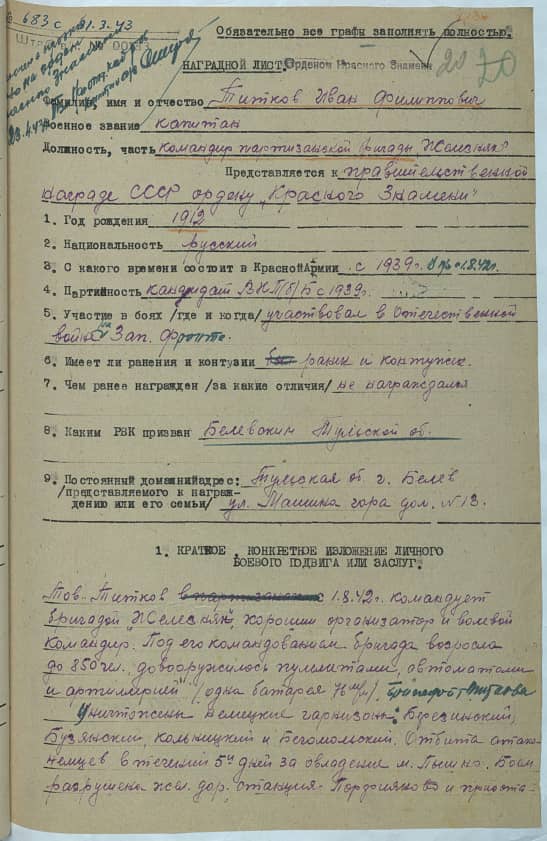 683 с 31.3.43
Обязательно все графы заполнять полностью.
НАГРАДНОЙ ЛИСТ. Орденом Красного Знамени 20
Фамилия, имя и отчество Титков Иван Филиппович
Военное звание капитан
Должность, часть командир партизанской бригады "Железняк"
Представляется к правительственной
награде СССР ордену "Красного Знамени"
1. Год рождения 1912
2. Национальность русский
3. С какого времени состоит в Красной Армии с 1939г. 1.8.42г.
4. Партийность кандидат ВКП(б)Б с 1939г.
5. Участие в боях /где и когда/ участвовал в Отечественной
войне на Зап. Фронте.
6. Имеет ли ранения и контузии ранен и контужен.
7. Чем ранее награжден /за какие отличия/ не награждался
8. Каким РВК призван Белевским Тульской об.
9. Постоянный домашний адрес: Тульская об. г. Белев
/представляемого к награж-
дению или его семьи/ ул. Машина гора дом. N 13.
1. КРАТКОЕ, КОНКРЕТНОЕ ИЗЛОЖЕНИЕ ЛИЧНОГО
БОЕВОГО ПОДВИГА ИЛИ ЗАСЛУГ.
Тов. Титков с 1.8.42г. командует
бригадой "Железняк", хороший организатор и волевой
командир. Под его командованием бригада возросла
до 850 чел. довооружилось пулеметами, автоматами
и артиллерией /одна батарея 76 м/м/. Бригадой т. Титкова
Уничтожены немецкие гарнизоны: Березинский,
Бузянский, Кальницкий и Бегомольский. Отбита атака
немцев в течении 5и дней за овладение м. Пышно. Боем
разрушена жел. дор. станция Парафияново и приоста-